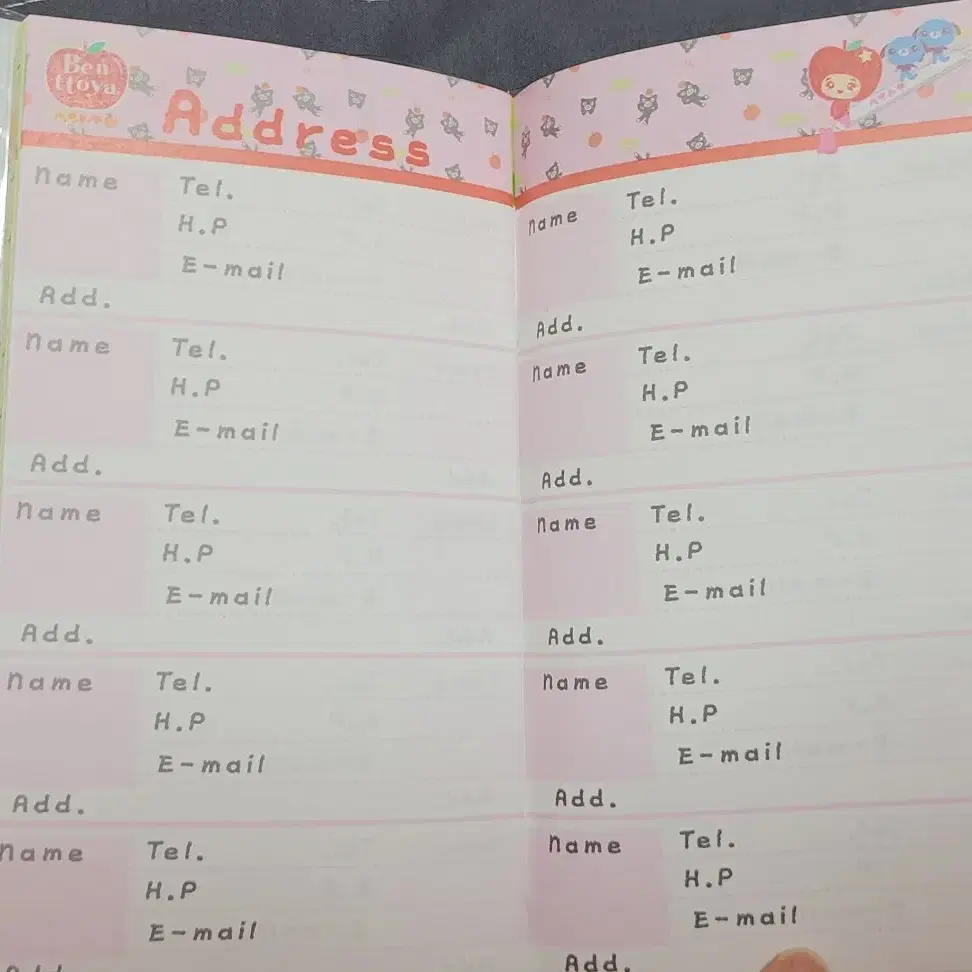 Ben
ttoya
Address
name
Tel.
H.P
E-mail
Add.
name
Tel.
H.P
E-mail
Add.
name
Tel.
H.P
E-mail
Add.
name
Tel.
H.P
E-mail
Add.
name
Tel.
H.P
E-mail
Add.
name
Tel.
H.P
E-mail
Add.
name
Tel.
H.P
E-mail
Add.
name
Tel.
H.P
E-mail
Add.
name
Tel.
H.P
E-mail
Add.
name
Tel.
H.P
E-mail
Add.